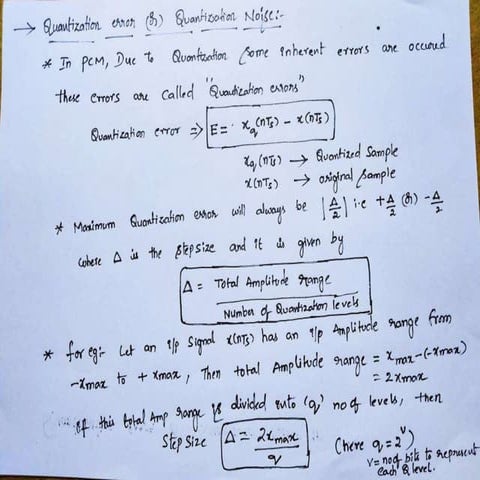 → Quantization error (or) Quantization Noise:-
* In PCM, Due to Quantization some inherent errors are occured
these errors are called "Quantization errors"
Quantization error ⇒ E = xq(nTs) - x(nTs)
xq(nTs) → Quantized Sample
x(nTs) → original Sample
* Maximum Quantization error will always be |Δ/2| i.e +Δ/2 (or) -Δ/2
where Δ is the step size and it is given by
Δ = Total Amplitude range / Number of Quantization levels
* for eg:- Let an i/p Signal x(nTs) has an i/p Amplitude range from
-xmax to +xmax, Then total Amplitude range = xmax-(-xmax)
= 2xmax
If this total Amp range is divided into 'q' no of levels, then
Step Size Δ = 2xmax / q (here q = 2^v)
v = no of bits to represent
each Q level.